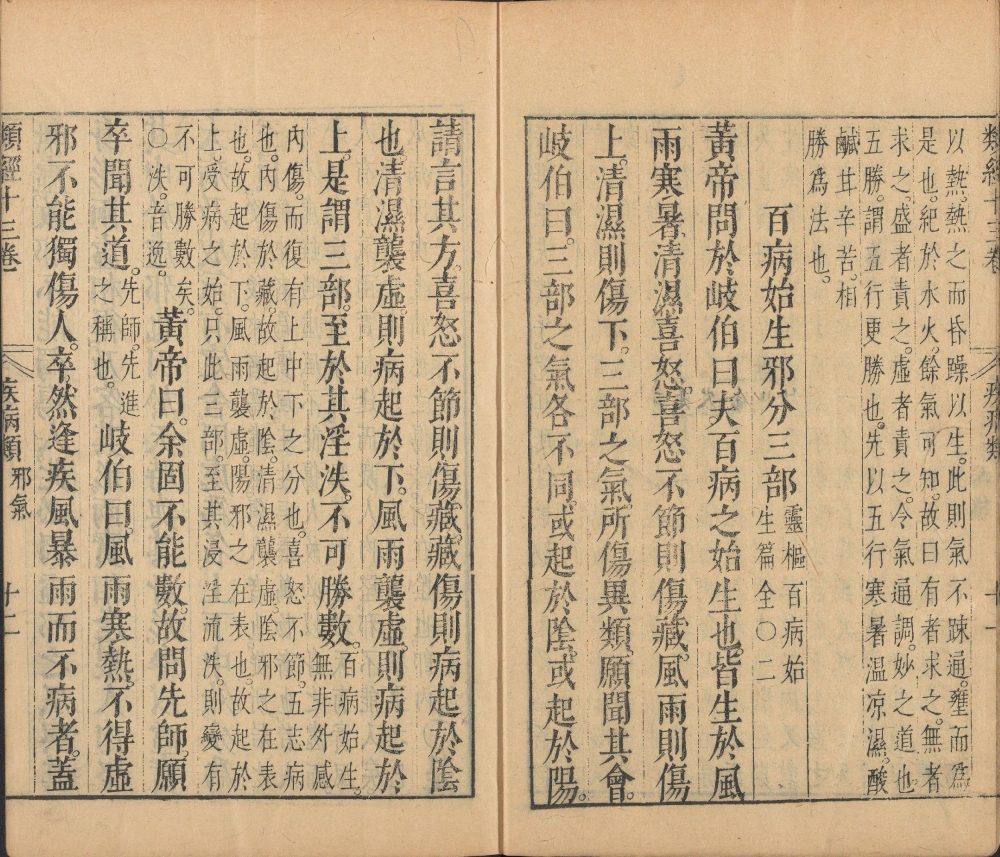 類經十三卷
疾病類
十一
以熱熱之而昏躁以生此則氣不踈通壅而爲
是也紀於水火餘氣可知故曰有者求之無者
求之盛者責之虛者責之令氣通調妙之道也
五勝謂五行更勝也先以五行寒暑温凉濕酸
鹹甘辛苦相
勝爲法也。
百病始生邪分三部
靈樞百病始
生篇全○二
黃帝問於岐伯曰夫百病之始生也皆生於風
雨寒暑清濕喜怒喜怒不節則傷藏風雨則傷
上清濕則傷下三部之氣所傷異類願聞其會
岐伯曰三部之氣各不同或起於陰或起於陽
請言其方喜怒不節則傷藏藏傷則病起於陰
也清濕襲虛則病起於下風雨襲虛則病起於
上是謂三部至於其淫泆不可勝數
百病始生
無非外感
內傷而復有上中下之分也喜怒不節五志病
也內傷於藏故起於陰清濕襲虛陰邪之在表
也故起於下風雨襲虛陽邪之在表也故起於
上受病之始只此三部至其浸淫流泆則變有
不可勝數矣
○泆音逸
黃帝曰余固不能數故問先師願
卒聞其道
先師先進
之稱也
岐伯曰風雨寒熱不得虛
邪不能獨傷人卒然逢疾風暴雨而不病者蓋
類經十三卷
疾病類
邪氣
十二